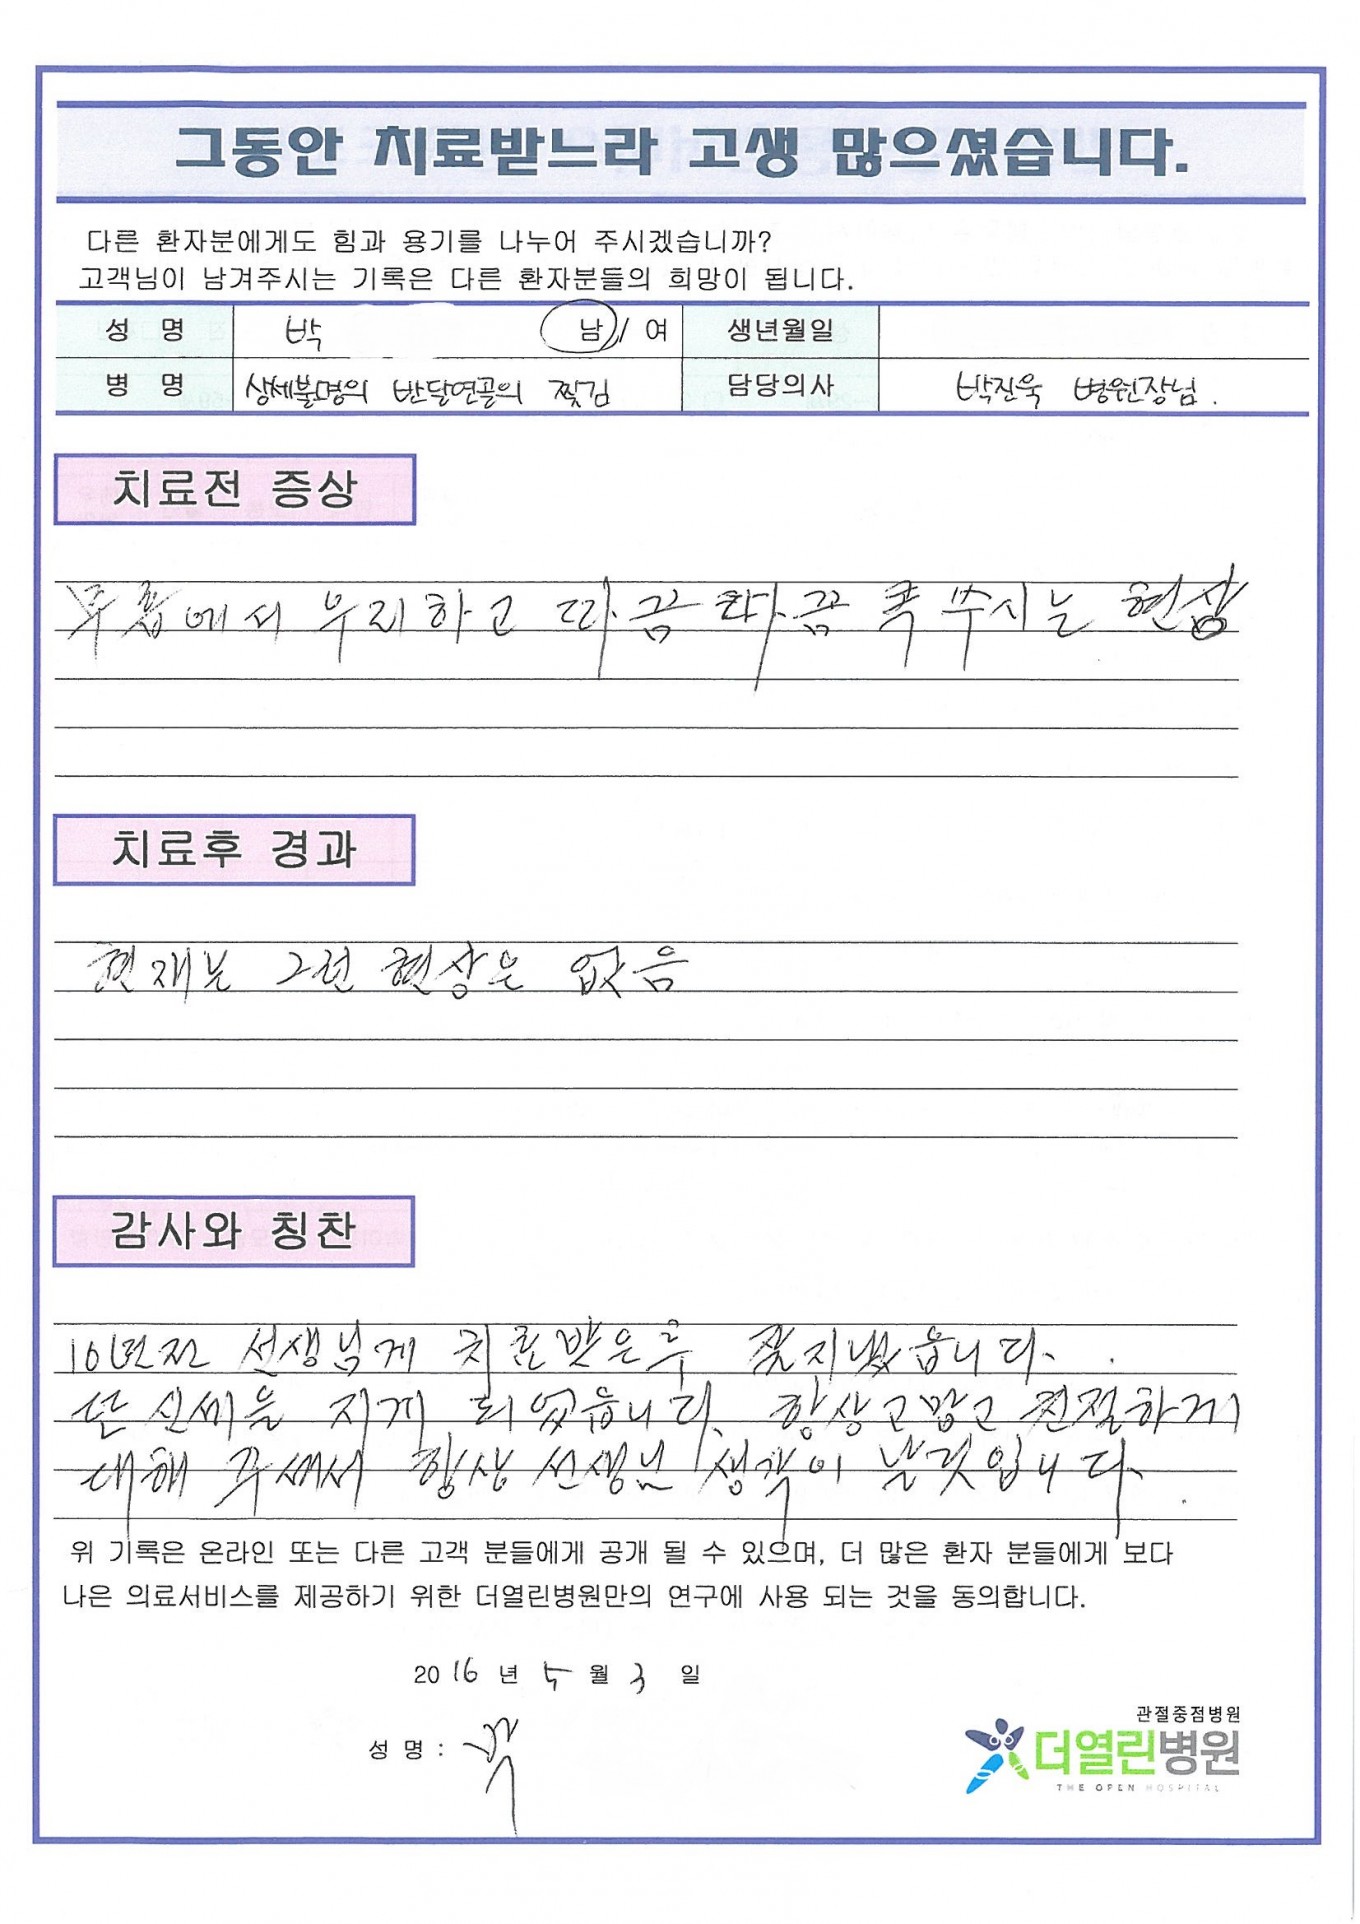 그동안 치료받느라 고생 많으셨습니다.
다른 환자분에게도 힘과 용기를 나누어 주시겠습니까?
고객님이 남겨주시는 기록은 다른 환자분들의 희망이 됩니다.
성 명 박 남 / 여 생년월일
병 명 상세불명의 반달연골의 찢김 담당의사 박진욱 병원장님.
치료전 증상
무릎에서 우리하고 따끔 따끔 콕 쑤시는 현상
치료후 경과
현재는 그런 현상은 없음
감사와 칭찬
10년전 선생님게 치료받은후 잘지냈읍니다.
또 신세를 지게 되었읍니다. 항상 고맙고 친절하게
대해 주쎄서 항상 선생님 생각이 날것입니다.
위 기록은 온라인 또는 다른 고객 분들에게 공개 될 수 있으며, 더 많은 환자 분들에게 보다
나은 의료서비스를 제공하기 위한 더열린병원만의 연구에 사용 되는 것을 동의합니다.
2016 년 5 월 3 일
성 명 : 박
관절중점병원
더열린병원
THE OPEN HOSPITAL